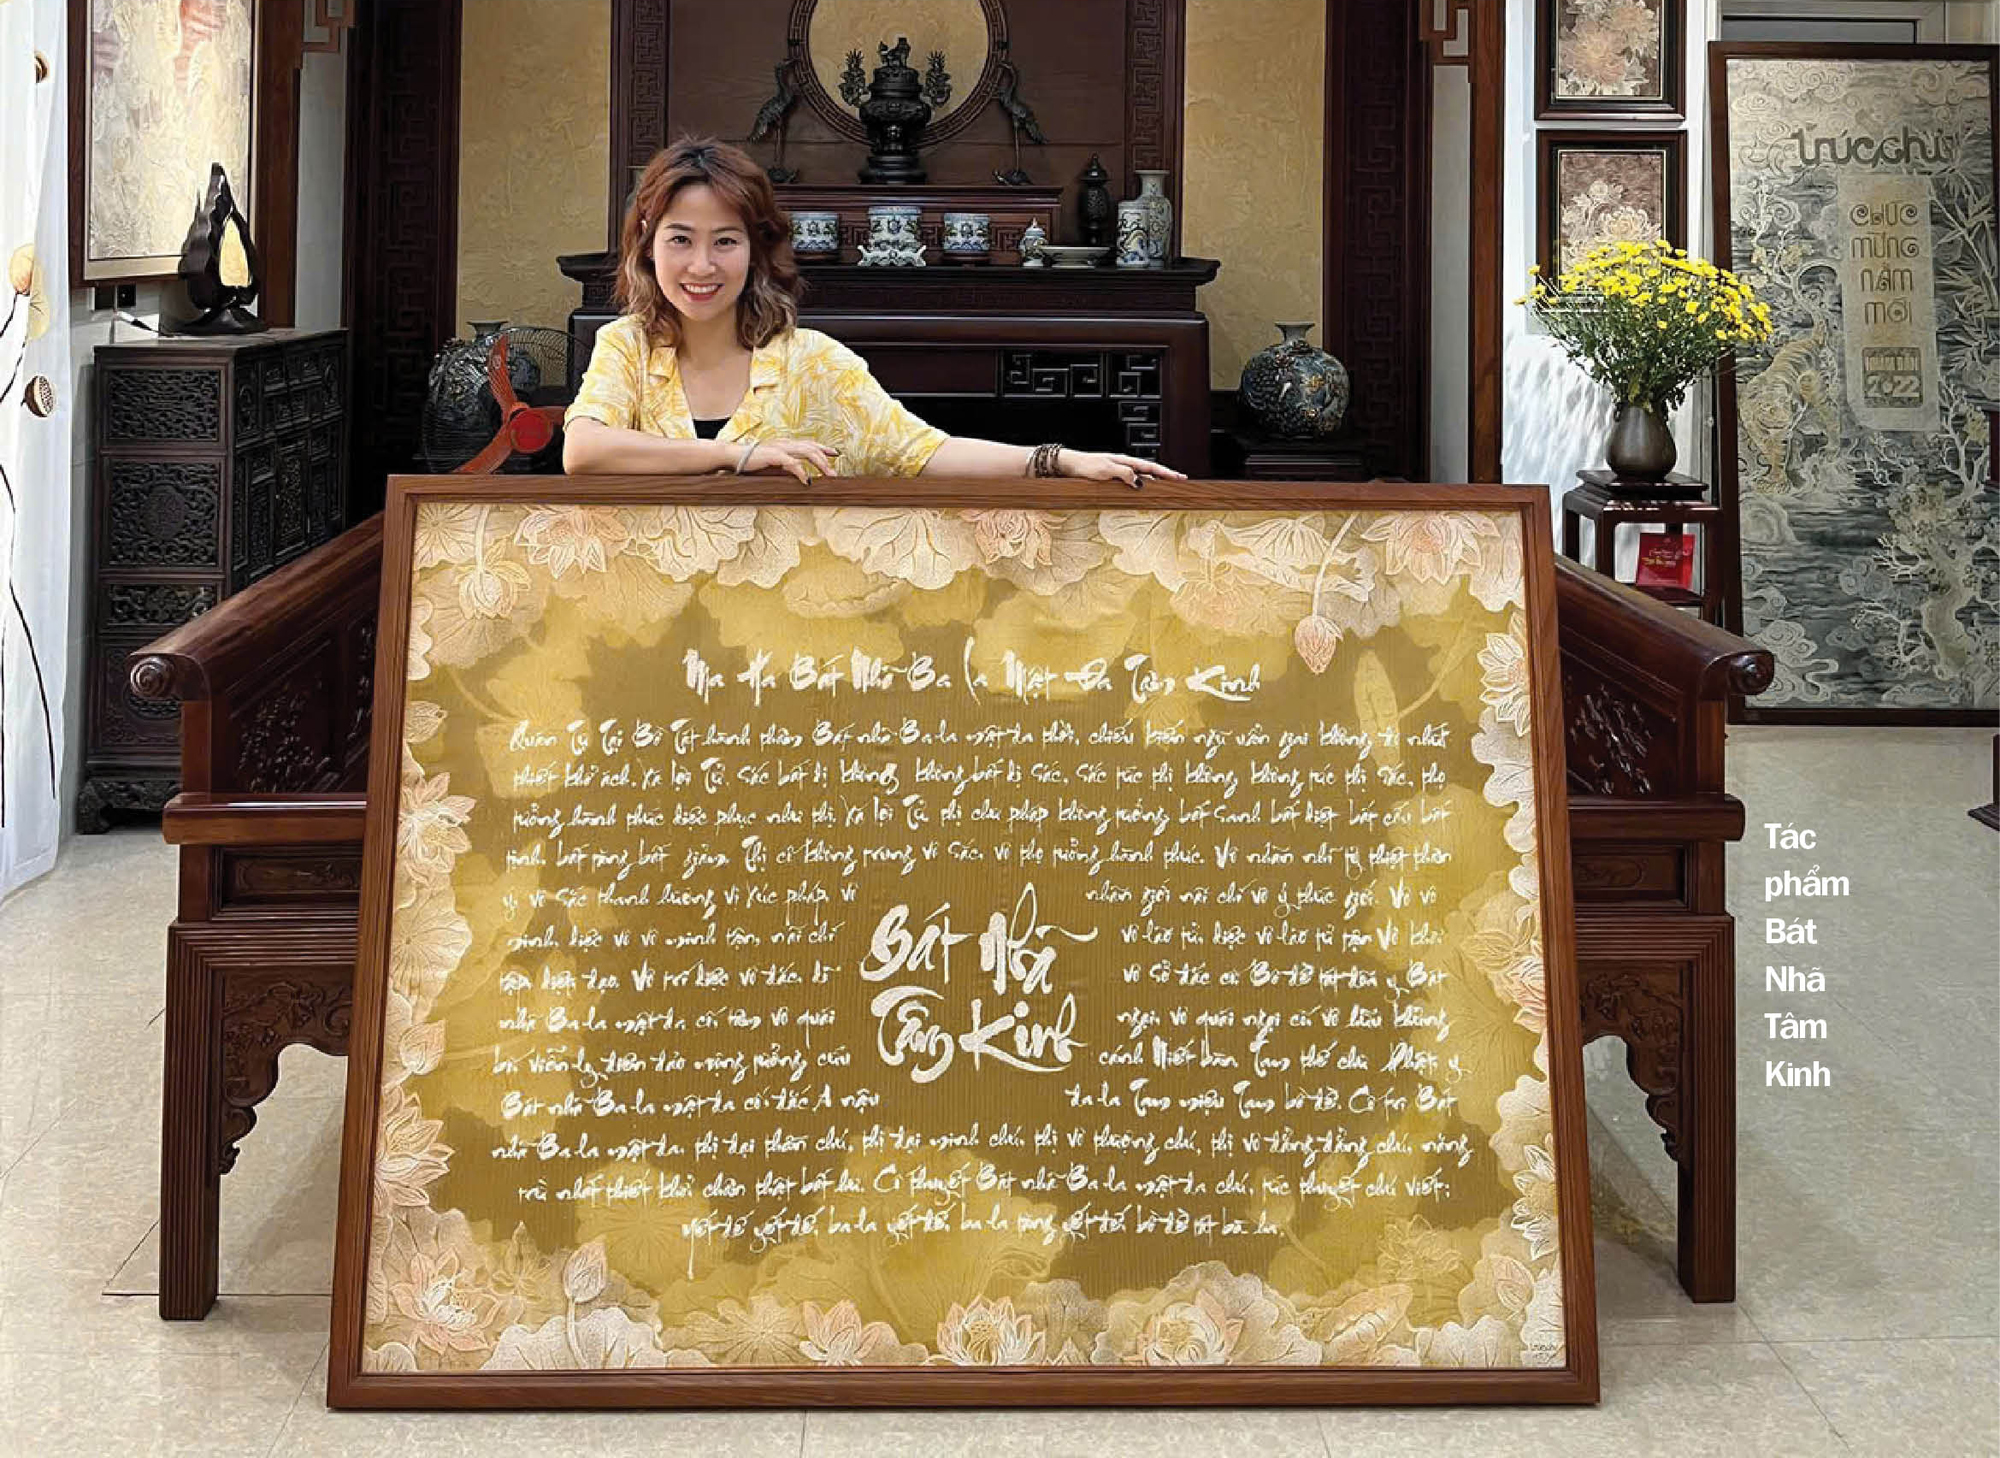 Ma Ha Bát Nhã Ba La Mật Đa Tâm Kinh
Quán Tự Tại Bồ Tát hành thâm Bát nhã Ba la mật đa thời, chiếu kiến ngũ uẩn giai không, độ nhất
thiết khổ ách. Xá lợi Tử, Sắc bất dị không, không bất dị Sắc, Sắc tức thị không, không tức thị Sắc, thọ
tưởng hành thức diệc phục như thị. Xá lợi Tử thị chư pháp không tướng, bất Sanh bất diệt bất cấu bất
tịnh, bất tăng bất giảm. Thị cố không trung vô Sắc, vô thọ tưởng hành thức. Vô nhãn nhĩ tỷ thiệt thân
ý, vô Sắc thanh hương vị xúc pháp, vô
nhãn giới nãi chí vô ý thức giới. Vô vô
minh, diệc vô vô minh tận, nãi chí
vô lão tử, diệc vô lão tử tận Vô khổ
tập diệt đạo. Vô trí diệc vô đắc, dĩ
vô Sở đắc cố. Bồ đề tát đỏa y Bát
nhã Ba la mật đa cố, tâm vô quái
ngại, vô quái ngại cố, vô hữu khủng
bố, viễn ly điên đảo mộng tưởng, cứu
cánh Niết bàn, Tam thế chư Phật y
Bát nhã Ba la mật đa cố, đắc A nậu
đa la Tam miệu Tam bồ đề. Cố tri Bát
nhã Ba la mật đa, thị đại thần chú, thị đại minh chú, thị vô thượng chú, thị vô đẳng đẳng chú, năng
trừ nhất thiết khổ, chân thật bất hư. Cố thuyết Bát nhã Ba la mật đa chú, tức thuyết chú viết:
yết đế yết đế, ba la yết đế, ba la tăng yết đế, bồ đề tát bà ha.
Bát Nhã
Tâm Kinh
trúc chỉ
chúc
mừng
năm
mới
2022
Tác
phẩm
Bát
Nhã
Tâm
Kinh